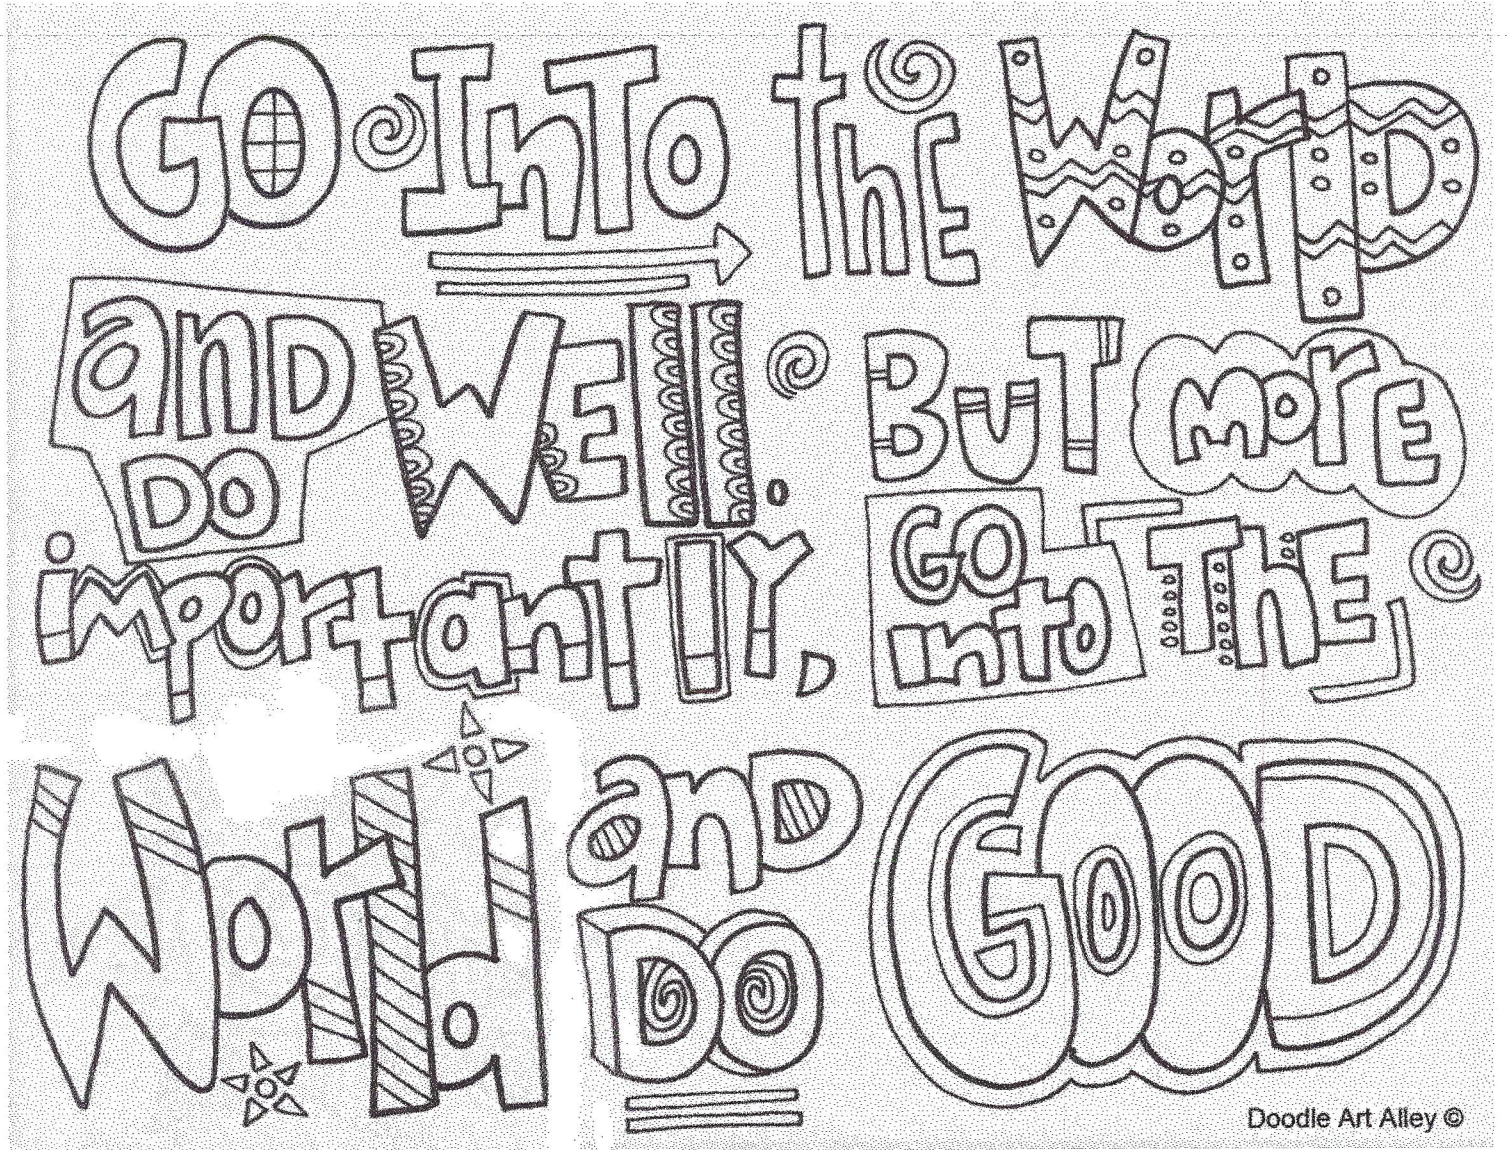 GO InTo thE WorlD
anD Do WEll. BuT morE
importantlY, GO into ThE
World anD Do GOOD
Doodle Art Alley ©